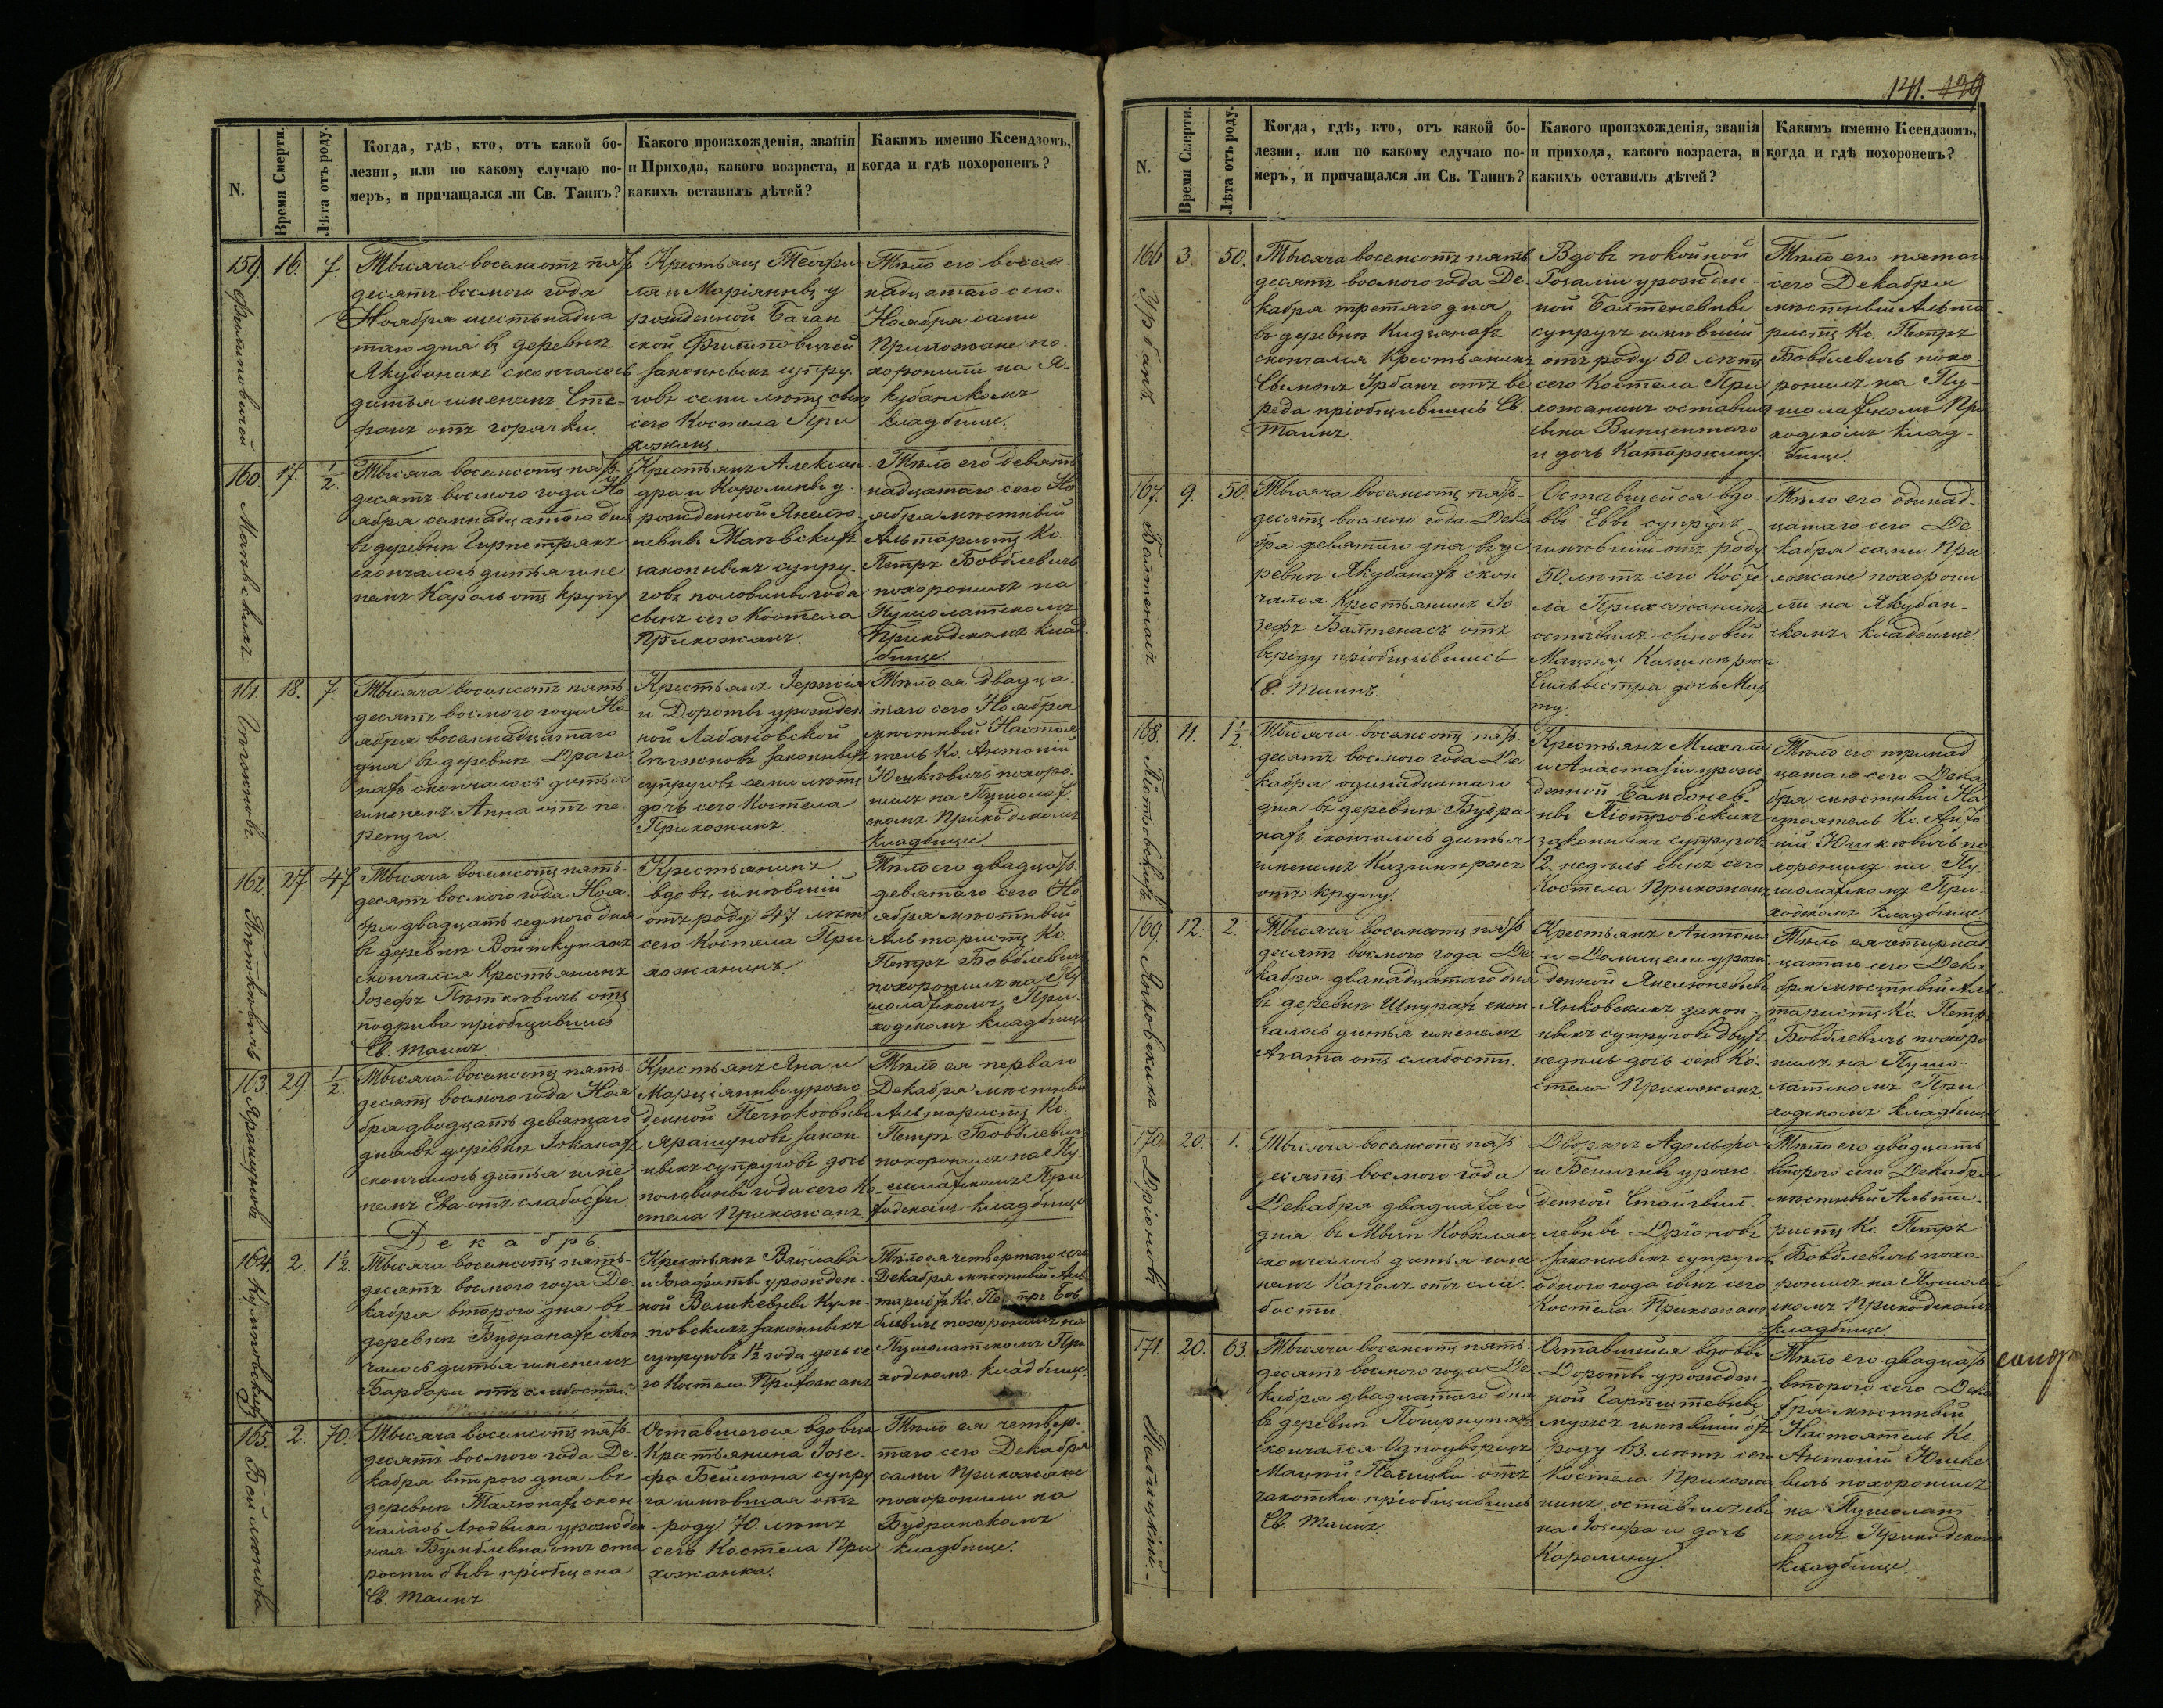 N.
Время Смерти.
Лѣта отъ роду.
Когда, гдѣ, кто, отъ какой бо-
лезни, или по какому случаю по-
меръ, и причащался ли Св. Таинъ?
Какого произхожденія, званія
и Прихода, какого возраста, и
какихъ оставилъ дѣтей?
Какимъ именно Ксендзомъ,
когда и гдѣ похороненъ?
159
16.
7
Тысяча восемсотъ пять
десятъ восмого года
Ноября шестьнадца
таго дня въ деревнѣ
Якубанахъ скончалось
дитья именемъ Сте-
фанъ отъ горячки.
Крестьянъ Теофи
ля и Маріянны у
рожденной Бачан
ской Филиповичей
законныхъ супру-
говъ семи лѣтъ сынъ
сего Костела При
хожанъ.
Тѣло его восем-
надцатаго сего
Ноября сами
Прихожане по-
хоронили на Я-
кубанскомъ
кладбище.
160
17.
1/2
Тысяча восемсотъ пять-
десятъ восмого года Но
ября семнадцатого дня
въ деревнѣ
скончалось дитья име
немъ Кароль отъ крупу
Крестьянъ Алексан
дра и Каролины у
рожденной
законныхъ супру-
говъ половины года
сынъ сего Костела
Прихожанъ.
Тѣло его девять
надцатаго сего Но
ября мѣстный
Альтаристъ Кс.
Петръ Бовблевичъ
похоронилъ на
Пушолатскомъ
Приходскомъ клад
бище.
161.
18.
7.
Тысяча восемсотъ пять
десятъ восмого года Но
ября восемнадцатаго
дня въ деревнѣ Драга
нахъ скончалось дитья
именемъ Анна отъ пе-
репуга
Крестьянъ
и Дороты урожден
ной Лабановской
законныхъ
супруговъ семи лѣтъ
дочь сего Костела
Прихожанъ.
Тѣло ея двадца-
таго сего Ноября
мѣстный Настоя
тель Кс. Антоній
Юшкевичъ похоро-
нилъ на Пушолат
скомъ Приходскомъ
кладбище
162.
27
47
Тысяча восемсотъ пять-
десятъ восмого года Ноя
бря двадцать седмого дня
въ деревнѣ Войткунахъ
скончался Крестьянинъ
Іозефъ Пѣткевичъ отъ
подрива пріобщившись
Св. Таинъ
Крестьянинъ
вдовъ имѣвшій
отъ роду 47 лѣтъ
сего Костела При
хожанинъ.
Тѣло его двадцать
девятаго сего Но
ября мѣстный
Альтаристъ Кс.
Петръ Бовблевичъ
похоронилъ на Пу
шолатскомъ При-
ходскомъ кладбище
163.
29.
1/2
Тысяча восемсотъ пять-
десятъ восмого года Ноя
бря двадцать девятаго
дня въ деревнѣ Іоканахъ
скончалось дитья име
немъ Ева отъ слабости.
Крестьянъ Яна и
Марціянны урож-
денной
Ярашуновъ закон
ныхъ супруговъ дочь
половины года сего Ко
стела Прихожанъ
Тѣло ея перваго
Декабря мѣстный
Альтаристъ Кс.
Петръ Бовблевичъ
похоронилъ на Пу
шолатскомъ При
ходскомъ кладбище
Декабрь
164.
2.
1 1/2
Тысяча восемсотъ пять-
десятъ восмого года Де-
кабря второго дня въ
деревнѣ Будранахъ скон
чалось дитья именемъ
Барбара отъ слабости.
Крестьянъ Вацлава
и урожден-
ной Величкевны Кули-
новскихъ законныхъ
супруговъ 1 1/2 года дочь се
го Костела Прихожанъ
Тѣло ея четвертаго сего
Декабря мѣстный Аль
таристъ Кс. Петръ Бов
блевичъ похоронилъ на
Пушолатскомъ При
ходскомъ кладбище.
165.
2.
70.
Тысяча восемсотъ пять-
десятъ восмого года Де-
кабря второго дня въ
деревнѣ скон
чалась Людвика урожден
ная отъ ста
рости бывъ пріобщена
Св. Таинъ
Оставшегося вдовца
Крестьянина Іозе-
фа Бейлюна супру
га имѣвшая отъ
роду 70 лѣтъ
сего Костела При
хожанка.
Тѣло ея четвер-
таго сего Декабря
сами Прихожане
похоронили на
Будранскомъ
кладбище.
141. 139
N.
Время Смерти.
Лѣта отъ роду.
Когда, гдѣ, кто, отъ какой бо-
лезни, или по какому случаю по-
меръ, и причащался ли Св. Таинъ?
Какого произхожденія, званія
и прихода, какого возраста, и
какихъ оставилъ дѣтей?
Какимъ именно Ксендзомъ,
когда и гдѣ похороненъ?
166
Урбанъ
3.
50.
Тысяча восемсотъ пять
десятъ восмого года Де
кабря третяго дня
въ деревнѣ Кидзанахъ
скончался Крестьянинъ
Сымонъ Урбанъ отъ ве
реда пріобщившись Св.
Таинъ.
Вдовъ покойной
Розаліи урожден-
ной Балтеневны
супругъ имѣвшій
отъ роду 50 лѣтъ
сего Костела При
хожанинъ оставилъ
сына Винцентаго
и дочь Катаржину.
Тѣло его пятаго
сего Декабря
мѣстный Альта
ристъ Кс. Петръ
Бовблевичъ похо-
ронилъ на Пу-
шолатскомъ При
ходскомъ клад-
бище.
167.
Балтенасъ
9.
50.
Тысяча восемсотъ пять-
десятъ восмого года Дека
бря девятаго дня въ де
ревнѣ Якубанахъ скон
чался Крестьянинъ Іо-
зефъ Балтенасъ отъ
вереду пріобщившись
Св. Таинъ.
Оставшейся вдо
вы Евы супругъ
имѣвшій отъ роду
50 лѣтъ сего Косте
ла Прихожанинъ
оставилъ сыновей
Мацѣя, Казимѣржа
Сильвестра дочь Мар
ту.
Тѣло его одинад-
цатаго сего Де
кабря сами При
хожане похорони
ли на Якубан-
скомъ кладбище
168.
11.
1 1/2.
Тысяча восемсотъ пять-
десятъ восмого года Де-
кабря одинадцатаго
дня въ деревнѣ Будра
нахъ скончалось дитья
именемъ Казимѣржъ
отъ крупу.
Крестьянъ Михала
и Анастазіи урож
денной
ны Піотровскихъ
законныхъ супруговъ
12 недѣль сынъ сего
Костела Прихожанъ
Тѣло его тринад-
цатаго сего Дека
бря мѣстный На
стоятель Кс. Анто
ній Юшкевичъ по
хоронилъ на Пу-
шолатскомъ При-
ходскомъ кладбище
169.
Янковскихъ
12.
2.
Тысяча восемсотъ пять-
десятъ восмого года Де
кабря дванадцатаго дня
въ деревнѣ Шпурахъ скон
чалось дитья именемъ
Агата отъ слабости.
Крестьянъ Антона
и Домицели урож
денной Янелюневны
Янковскихъ закон-
ныхъ супруговъ двухъ
недѣль дочь сего Ко-
стела Прихожанъ
Тѣло ея четырнад
цатаго сего Дека
бря мѣстный Аль-
таристъ Кс. Петръ
Бовблевичъ похоро
нилъ на Пушо-
латскомъ При
ходскомъ кладбище
170.
20.
1.
Тысяча восемсотъ пять
десятъ восмого года
Декабря двадцатаго
дня въ
скончалось дитья име
немъ Кароль отъ сла-
бости
Дворянъ Адольфа
и Бенигны урож-
денной
законныхъ супруговъ
одного года сынъ сего
Костела Прихожанъ
Тѣло его двадцать
второго сего Декабря
мѣстный Альта-
ристъ Кс Петръ
Бовблевичъ похо-
ронилъ на Пушолат
скомъ Приходскомъ
кладбище
171.
20.
63.
Тысяча восемсотъ пять-
десятъ восмого года Де
кабря двадцатаго дня
въ деревнѣ
скончался Однодворецъ
Мацѣй отъ
чахотки пріобщившись
Св. Таинъ.
Оставшейся вдовы
Дороты урожден-
ной
мужъ имѣвшій отъ
роду 63 лѣтъ сего
Костела Прихожа
нинъ, оставилъ сы
на Іозефа и дочь
Каролину.
Тѣло его двадцать
второго сего Дека
бря мѣстный
Настоятель Кс.
Антоній Юшке
вичъ похоронилъ
на Пушолат-
скомъ Приходскомъ
кладбище.